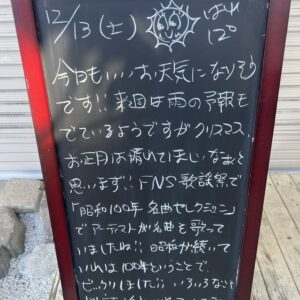 12/13(土) はれ 12°
今日もいいお天気になりそう
です!! 来週は雨の予報も
でているようですがクリスマス、
お正月は晴れてほしいなぁと
思います!! FNS歌謡祭で
「昭和100年 名曲セレクション」
でアーティストが名曲を歌って
いましたね!! 昭和が続いて
いれば100年ということで、
ビックリしました!! いろいろなこと